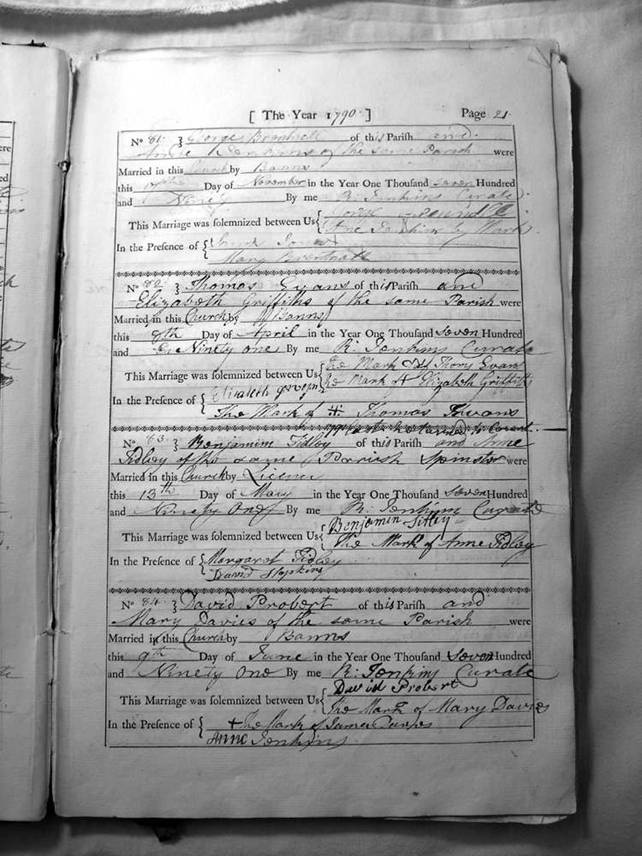 [ The Year 1790. ] Page 21.
No 81. } George of this Parish and
of the same Parish were
Married in this Church by Banns
this Day of November in the Year One Thousand seven Hundred
and Ninety By me R. Jenkins Curate
This Marriage was solemnized between Us {
by Mark
In the Presence of {
Mary
No 82. } Thomas Evans of this Parish and
Elizabeth Griffiths of the same Parish were
Married in this Church by Banns
this 9th Day of April in the Year One Thousand seven Hundred
and Ninety one By me R. Jenkins Curate
This Marriage was solemnized between Us { The Mark of Thos Evans
The Mark of Elizabeth Griffiths
In the Presence of { Elizabeth
The Mark of Thomas
No 83. } Benjamin Fidley of this Parish and Anne
Fidley of the same Parish Spinster were
Married in this Church by Licence
this 13th Day of May in the Year One Thousand seven Hundred
and Ninety One By me R. Jenkins Curate
This Marriage was solemnized between Us { Benjamin
The Mark of Anne Fidley
In the Presence of { Margaret Fidley
David Hopkins
No 84. } David Probert of this Parish and
Mary Davies of the same Parish were
Married in this Church by Banns
this 9th Day of June in the Year One Thousand Seven Hundred
and Ninety One By me R. Jenkins Curate
This Marriage was solemnized between Us { David Probert
The Mark of Mary Davies
In the Presence of { + the Mark of James
Anne Jenkins